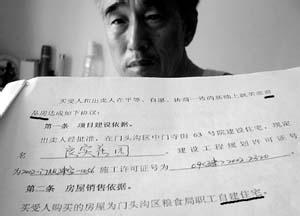 买受人和出卖人在平等、自愿、协商一致的基础上就买卖商
品房达成如下协议:
第一条 项目建设依据。
出卖人经批准,在门头沟区中门寺街 63 号院建设住宅,现定
名 。建设工程规划许可证号
为 施工许可证号为
第二条 房屋销售依据。
买受人购买的房屋为门头沟区粮食局职工自建住宅。